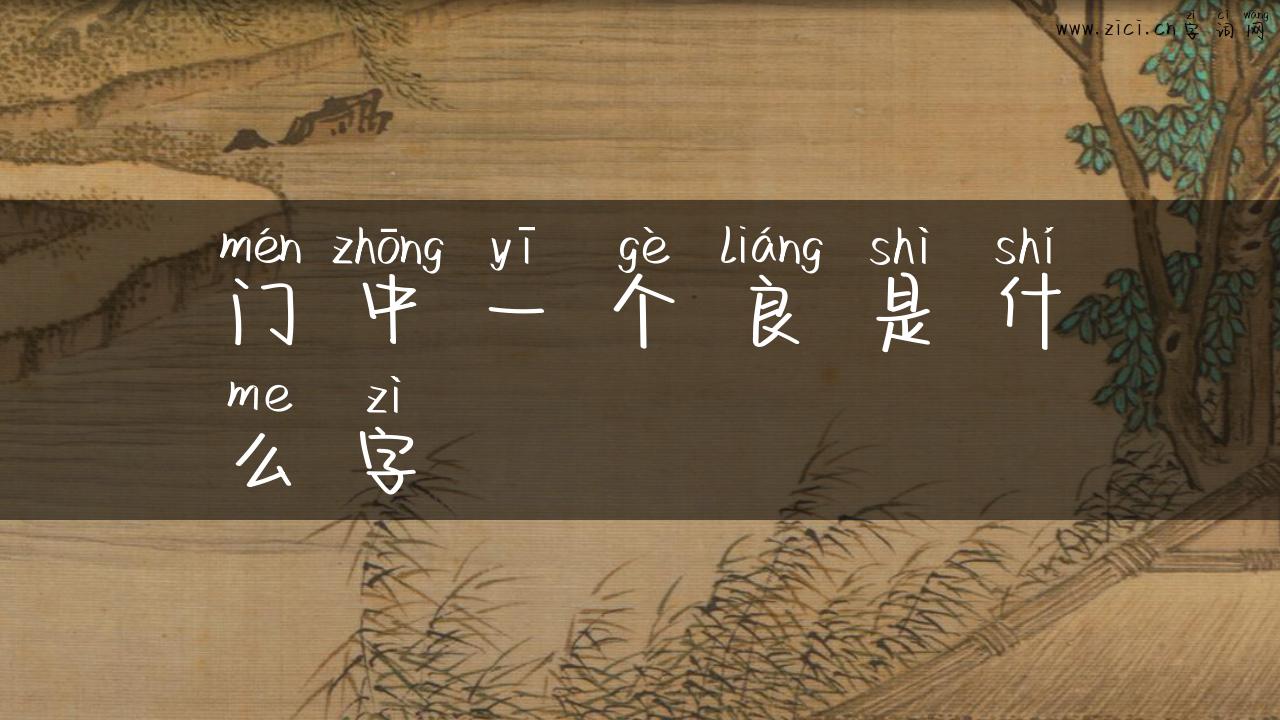 zì cí wǎng
www.zici.cn字词网
mén zhōng yī gè liáng shì shí
门中一个良是什
me zì
么字